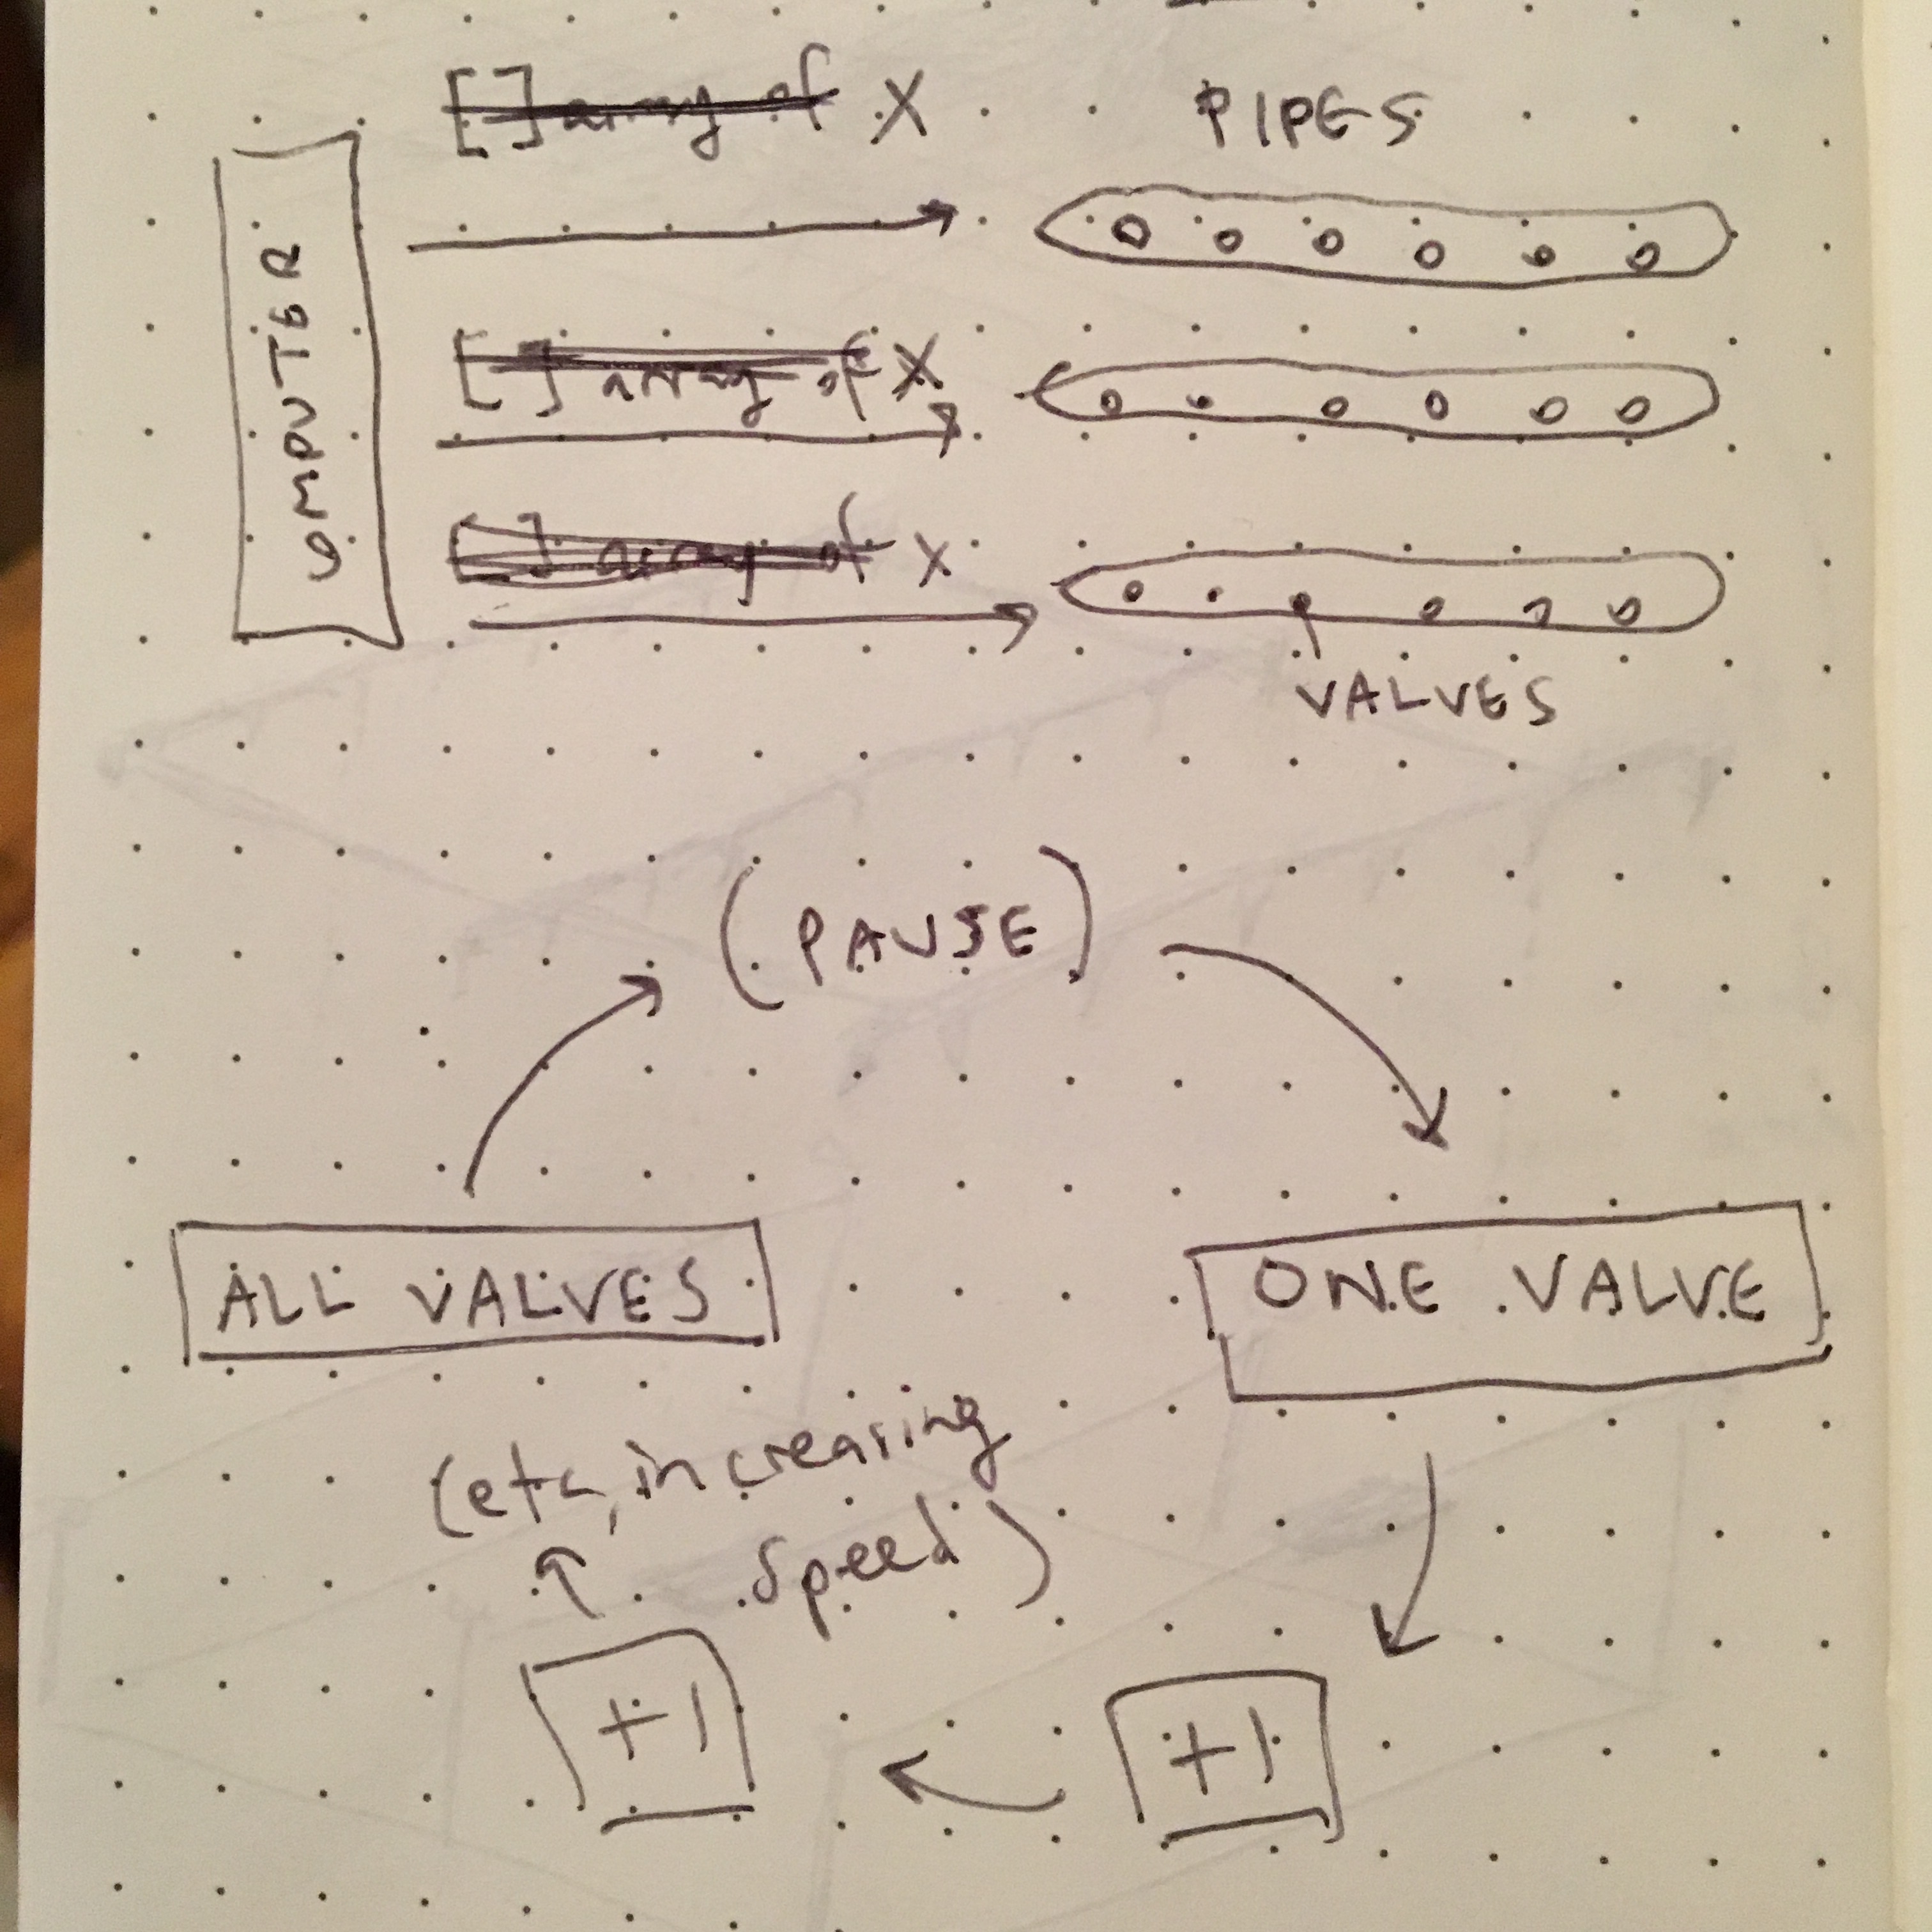 [ ] array of X
PIPES
COMPUTER
[ ] array of X
[ ] array of X
VALVES
(PAUSE)
ALL VALVES
ONE VALVE
(etc, increasing
speed)
+1
+1